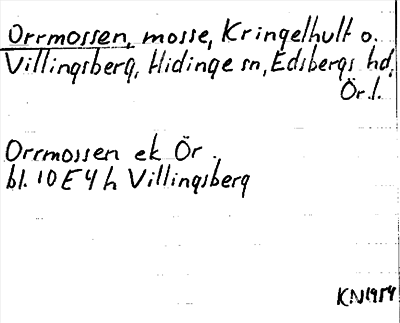 Orrmossen, mosse, Kringelhult o.
Villingsberg, Hidinge sn, Edsbergs hd,
Ör. l.
Orrmossen ek Ör.
bl. 10 E 4 h Villingsberg